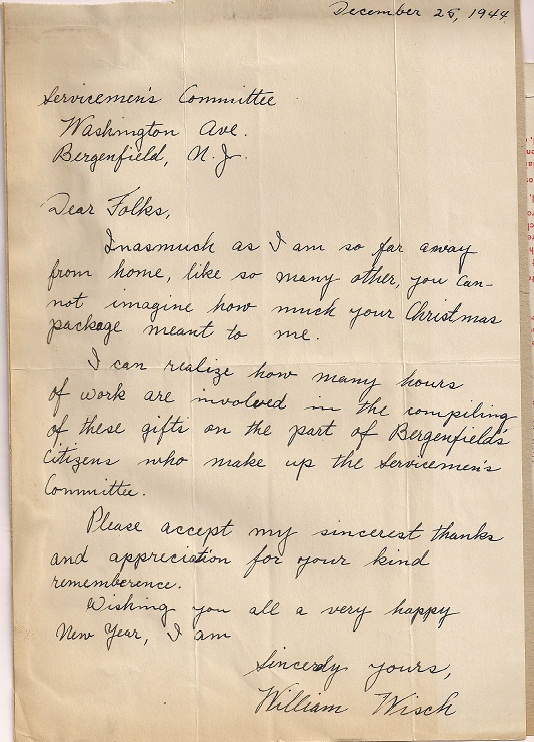 December 25, 1944
Servicemen's Committee
Washington Ave.
Bergenfield, N.J.
Dear Folks,
Inasmuch as I am so far away
from home, like so many other, you can-
not imagine how much your Christmas
package meant to me.
I can realize how many hours
of work are involved in the compiling
of these gifts on the part of Bergenfield's
citizens who make up the Servicemen's
Committee.
Please accept my sincerest thanks
and appreciation for your kind
rememberence.
Wishing you all a very happy
New Year, I am
Sincerely yours,
William Wisch